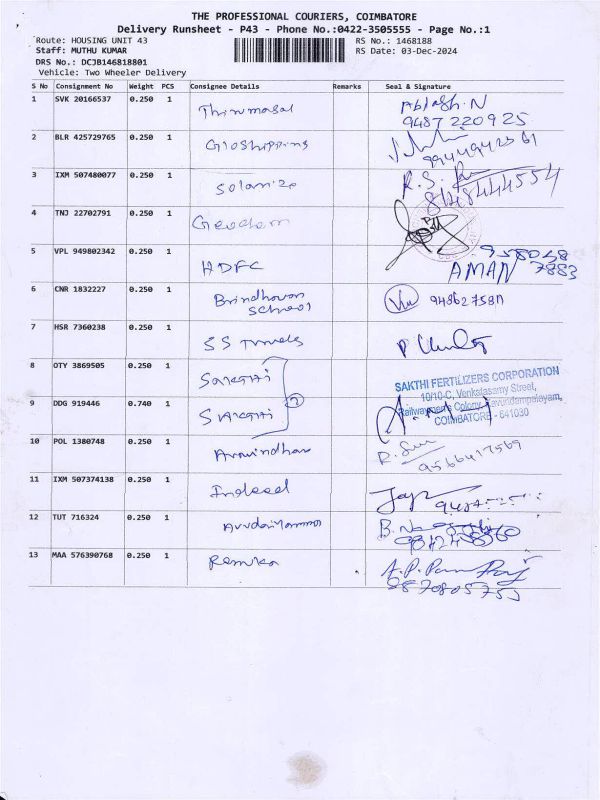 THE PROFESSIONAL COURIERS, COIMBATORE
Delivery Runsheet - P43 - Phone No.:0422-3505555 - Page No.:1
Route: HOUSING UNIT 43 RS No.: 1468188
Staff: MUTHU KUMAR RS Date: 03-Dec-2024
DRS No.: DCJB146818801
Vehicle: Two Wheeler Delivery
S No Consignment No Weight PCS Consignee Details Remarks Seal & Signature
1 SVK 20166537 0.250 1 Thirumagal
9487220925
2 BLR 425729765 0.250 1 Gloshippins
3 IXM 507480077 0.250 1 R.S.
4 TNJ 22702791 0.250 1
5 VPL 949802342 0.250 1 HDFC AMAN
6 CNR 1832227 0.250 1 Brindhavan
School
7 HSR 7360238 0.250 1 SS Travels
8 OTY 3869505 0.250 1 Sakthi
SAKTHI FERTILIZERS CORPORATION
10/10-C, Venkatasamy Street,
9 DDG 919446 0.740 1 Sakthi 2
Railwaymen's Colony, Kavundampalayam,
COIMBATORE - 641030
10 POL 1380748 0.250 1 Aravindhan
9566417569
11 IXM 507374138 0.250 1
12 TUT 716324 0.250 1
13 MAA 576390768 0.250 1 Renuka